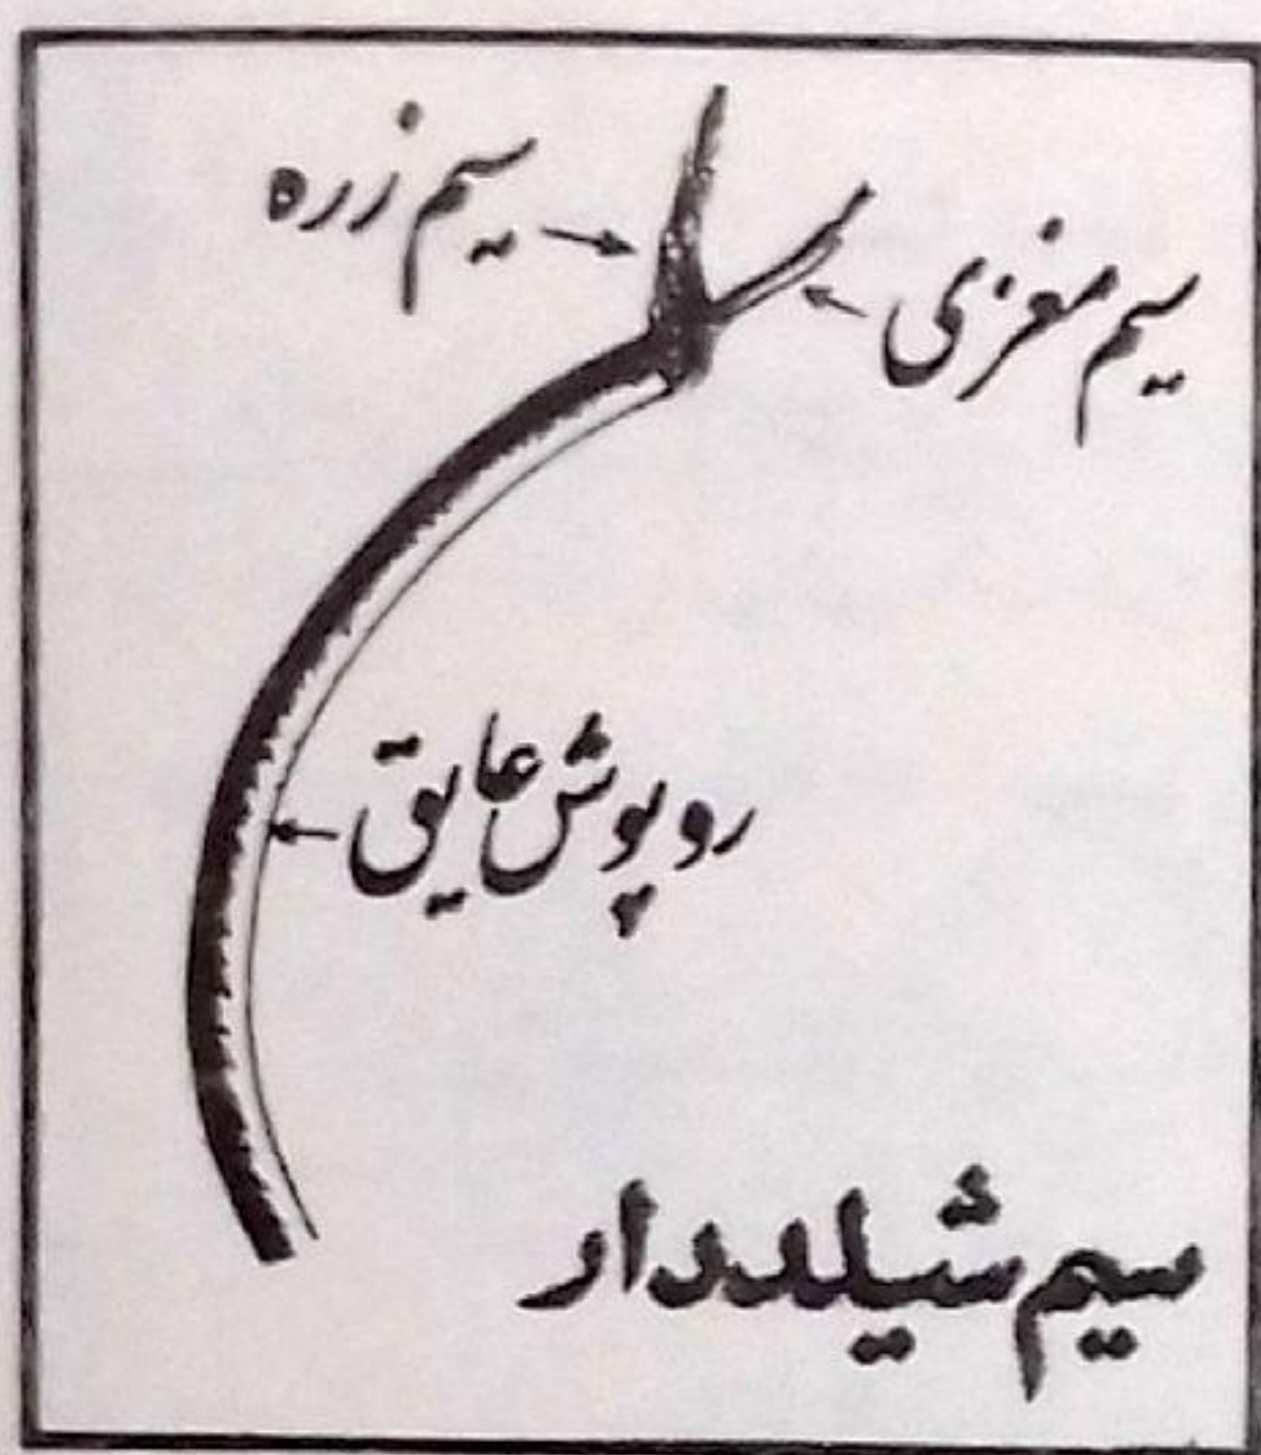 سیم زره
سیم مغزی
روپوش عایق
سیم شیلددار